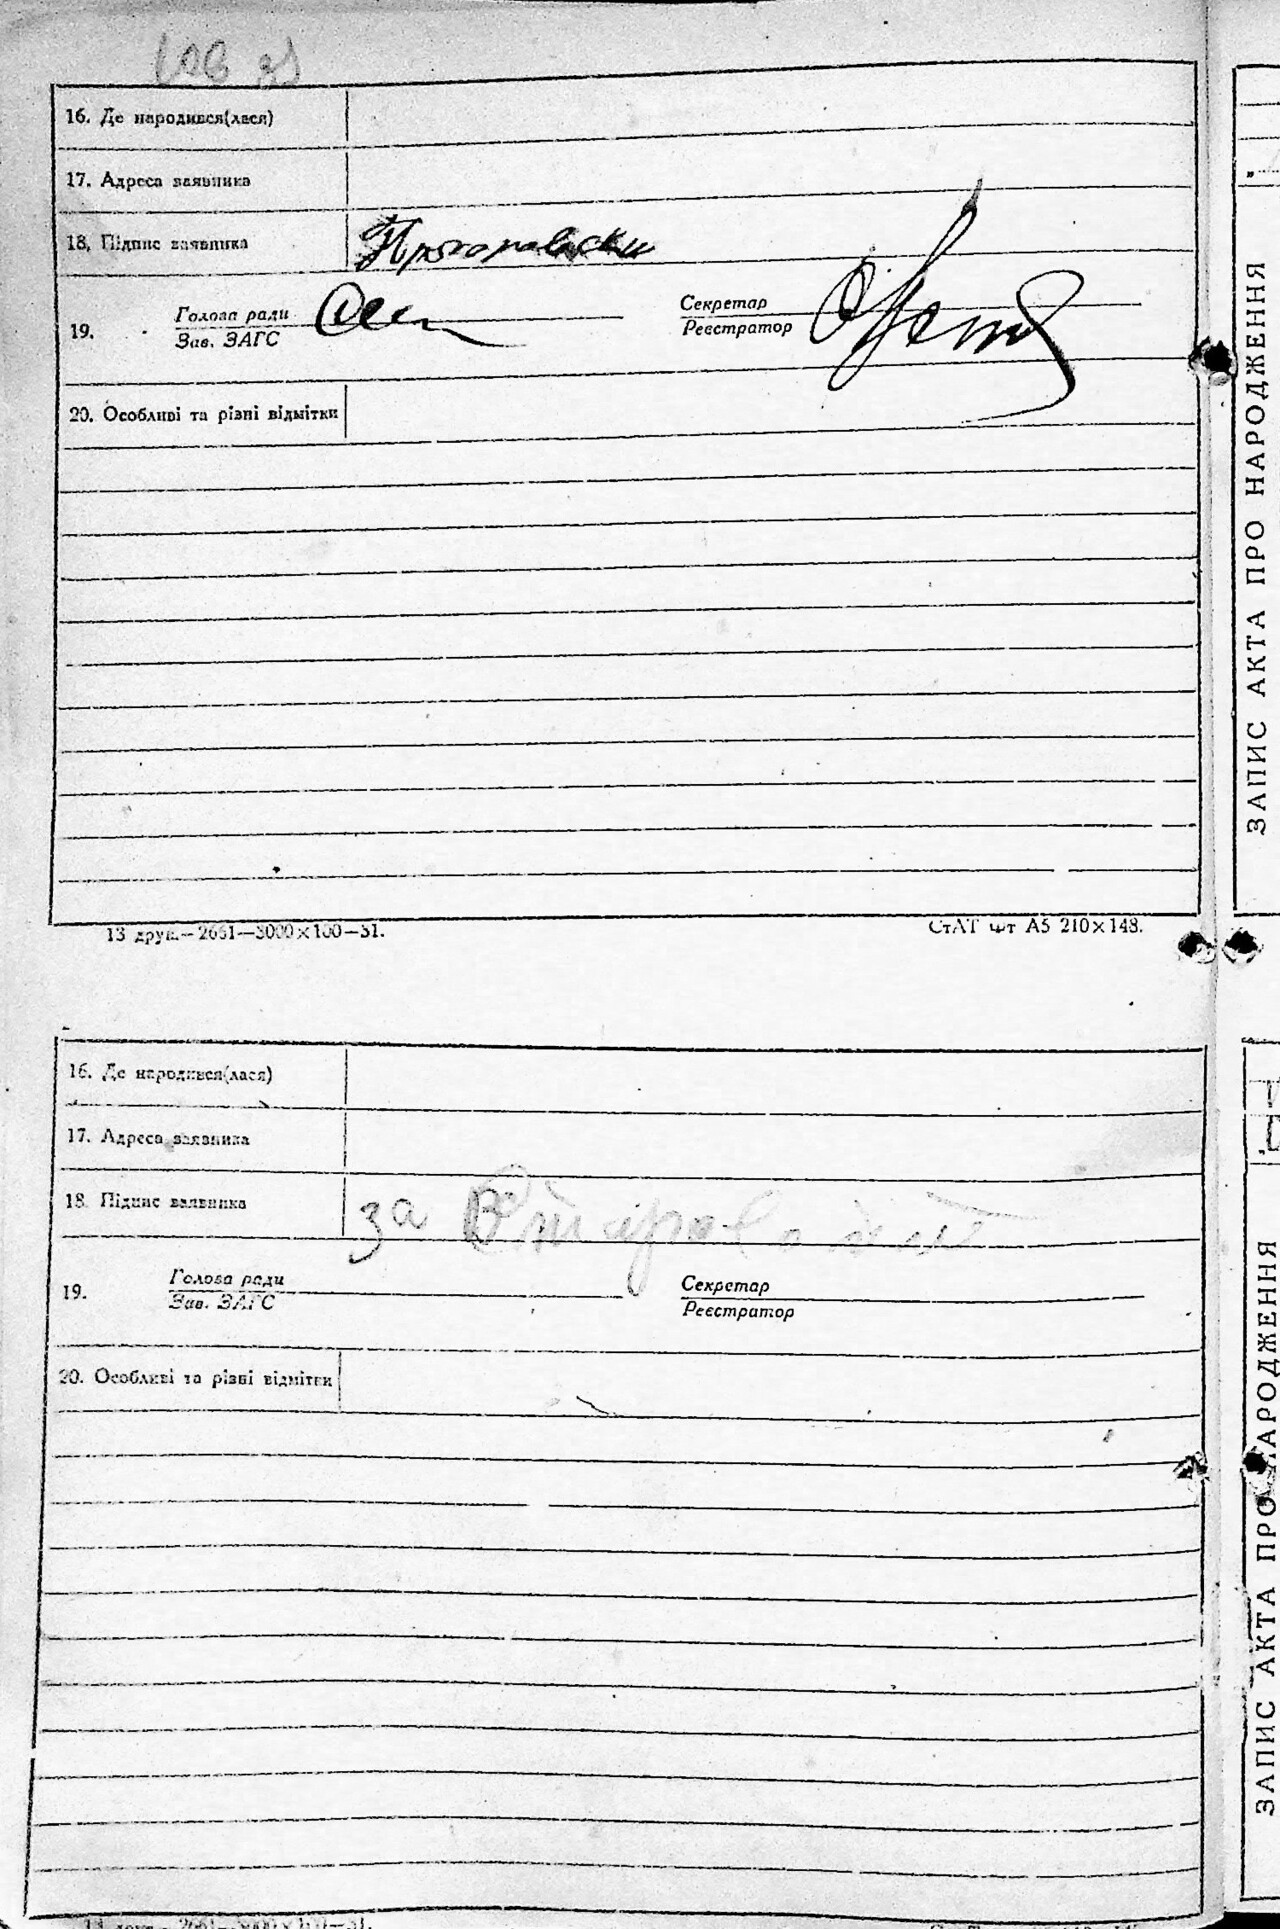 16. Де народився(лася)
17. Адреса заявника
18. Підпис заявника
19. Голова ради
Зав. ЗАГС
Секретар
Реєстратор
20. Особливі та різні відмітки
13 друк.—2661—3000×100—31.
СтАТ Фт А5 210×148.
16. Де народився(лася)
17. Адреса заявника
18. Підпис заявника за
19. Голова ради
Зав. ЗАГС
Секретар
Реєстратор
20. Особливі та різні відмітки
13 друк.—2661—3000×100—31.
ЗАПИС АКТА ПРО НАРОДЖЕННЯ
ЗАПИС АКТА ПРО НАРОДЖЕННЯ